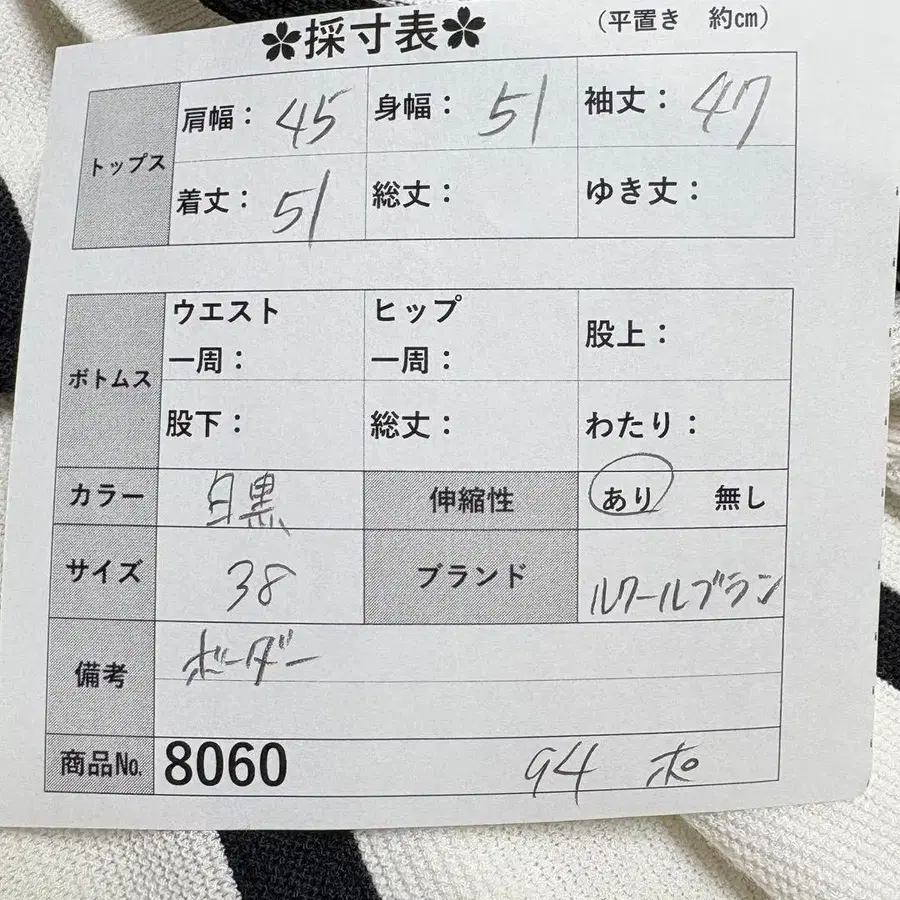 ✿採寸表✿ (平置き 約cm)
トップス 肩幅: 45 身幅: 51 袖丈: 47
着丈: 51 総丈: ゆき丈:
ボトムス ウエスト一周: ヒップ一周: 股上:
股下: 総丈: わたり:
カラー 白黒 伸縮性 あり 無し
サイズ 38 ブランド ルワールブラン
備考 ボーダー
商品No. 8060 94 ポ